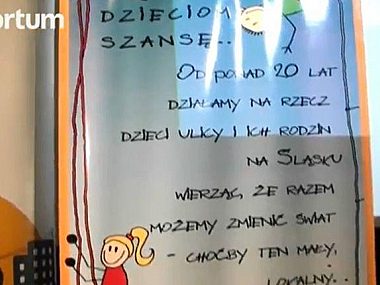 ortum
DZIECIOM
SZANSĘ...
OD PONAD 20 LAT
DZIAŁAMY NA RZECZ
DZIECI ULICY I ICH RODZIN
NA ŚLĄSKU
WIERZĄC, ŻE RAZEM
MOŻEMY ZMIENIĆ ŚWIAT
- CHOĆBY TEN MAŁY,
LOKALNY...